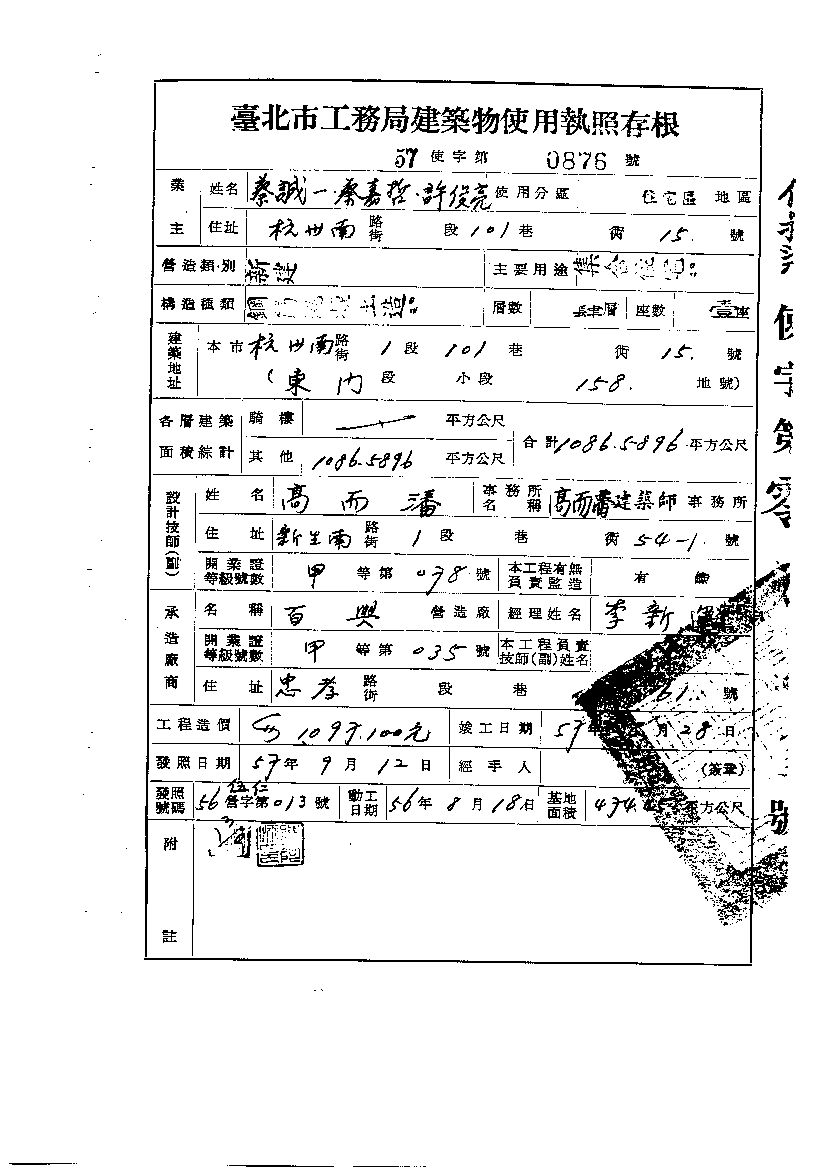 臺北市工務局建築物使用執照存根
57 使字第 0876 號
業主 姓名 蔡誠一·蔡嘉哲·許俊亮 使用分區 住宅區 地區
住址 杭州南 路街 段 101 巷 衖 15. 號
營造類別 新建 主要用途 集合住宅
構造種類 鋼筋混凝土造 層數 層 座數 壹座
建築地址 本市 杭州南 路街 1 段 101 巷 衖 15. 號
(東門 段 小段 158. 地號)
各層建築面積綜計 騎樓 平方公尺 合計 1086.5896 平方公尺
其他 1086.5896 平方公尺
設計技師(副) 姓名 高而潘 事務所名稱 高而潘建築師 事務所
住址 新生南 路街 1 段 巷 衖 54-1. 號
開業證等級號數 甲 等第 038 號 本工程有無負責監造 有
承造廠商 名稱 百興 營造廠 經理姓名 李新
開業證等級號數 甲 等第 035 號 本工程負責技師(副)姓名
住址 忠孝 路街 段 巷 61. 號
工程造價 109,100元 竣工日期 57年 月 28 日
發照日期 57年 9 月 12 日 經手人 (簽章)
發照號碼 56 營字第 013 號 動工日期 56年 8 月 18日 基地面積 平方公尺
附註
使字第零
號